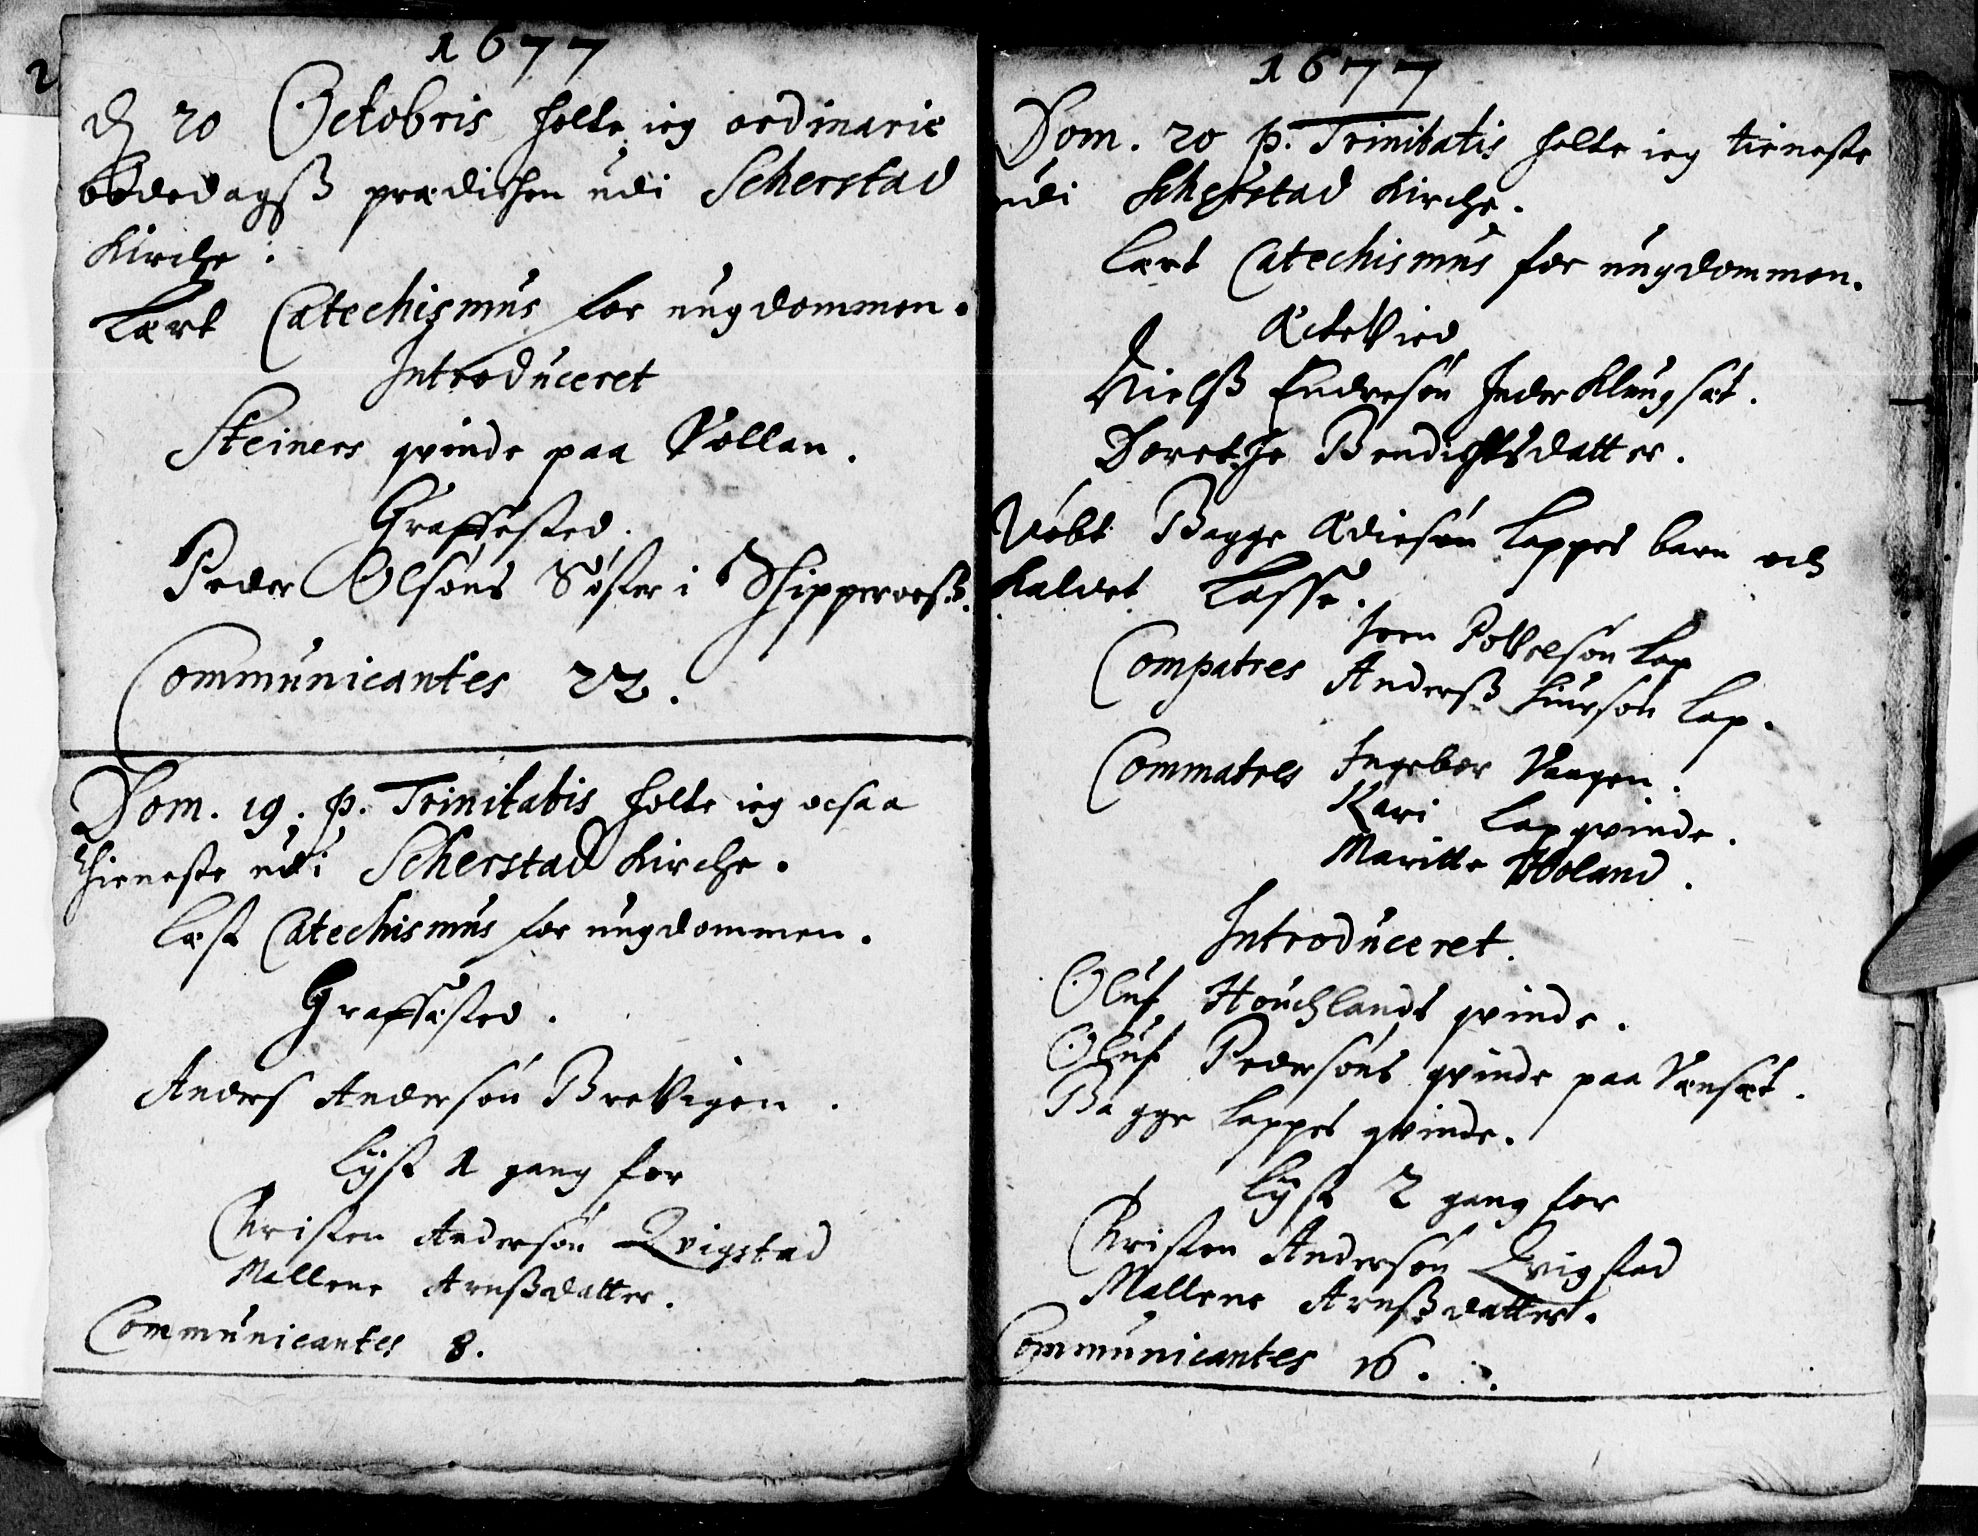 2
1677
d 20 Octobris holte ieg ordinarie
bededagsß prædichen udi Scherstad
Kirche.
Lært Catechismus for ungdommen.
Introduceret
Steiners qvinde paa Vollan.
Graffæsted.
Peder Olsøns Søster i Schipperoeß.
Communicantes 22.
Dom. 19. p. Trinitatis holte ieg ocsaa
thieneste udi Scherstad Kirche.
Læst Catechismus for ungdommen.
Graffæsted.
Anders Andersøn Brevigen.
Lyst 1 gang for
Christen Andersøn Qvigstad
Mallene Arnßdatter.
Communicantes 8.
1677
Dom. 20 p. Trinitatis holte ieg tieneste
udi Scherstad Kirche.
Lært Catechismus for ungdommen.
Æctevied
Nielß Endresøn Inder Klungsæt.
Dorethe Bendichtsdatter.
Døbt Bagge Ædiesøn Lappes barn och
kaldet Lasse.
Iven Povelsøn Lap
Compatres Anderß Siursøn Lap.
Commatres Ingebor Vaagen.
Kari Lapqvinde.
Maritte Holand.
Introduceret.
Oluf Houchlands qvinde.
Oluf Pedersøns qvinde paa Vænsæt.
Bagge Lappes qvinde.
Lyst 2 gang for
Christen Andersøn Qvigstad
Mallene Arnßdatter.
Communicantes 16.